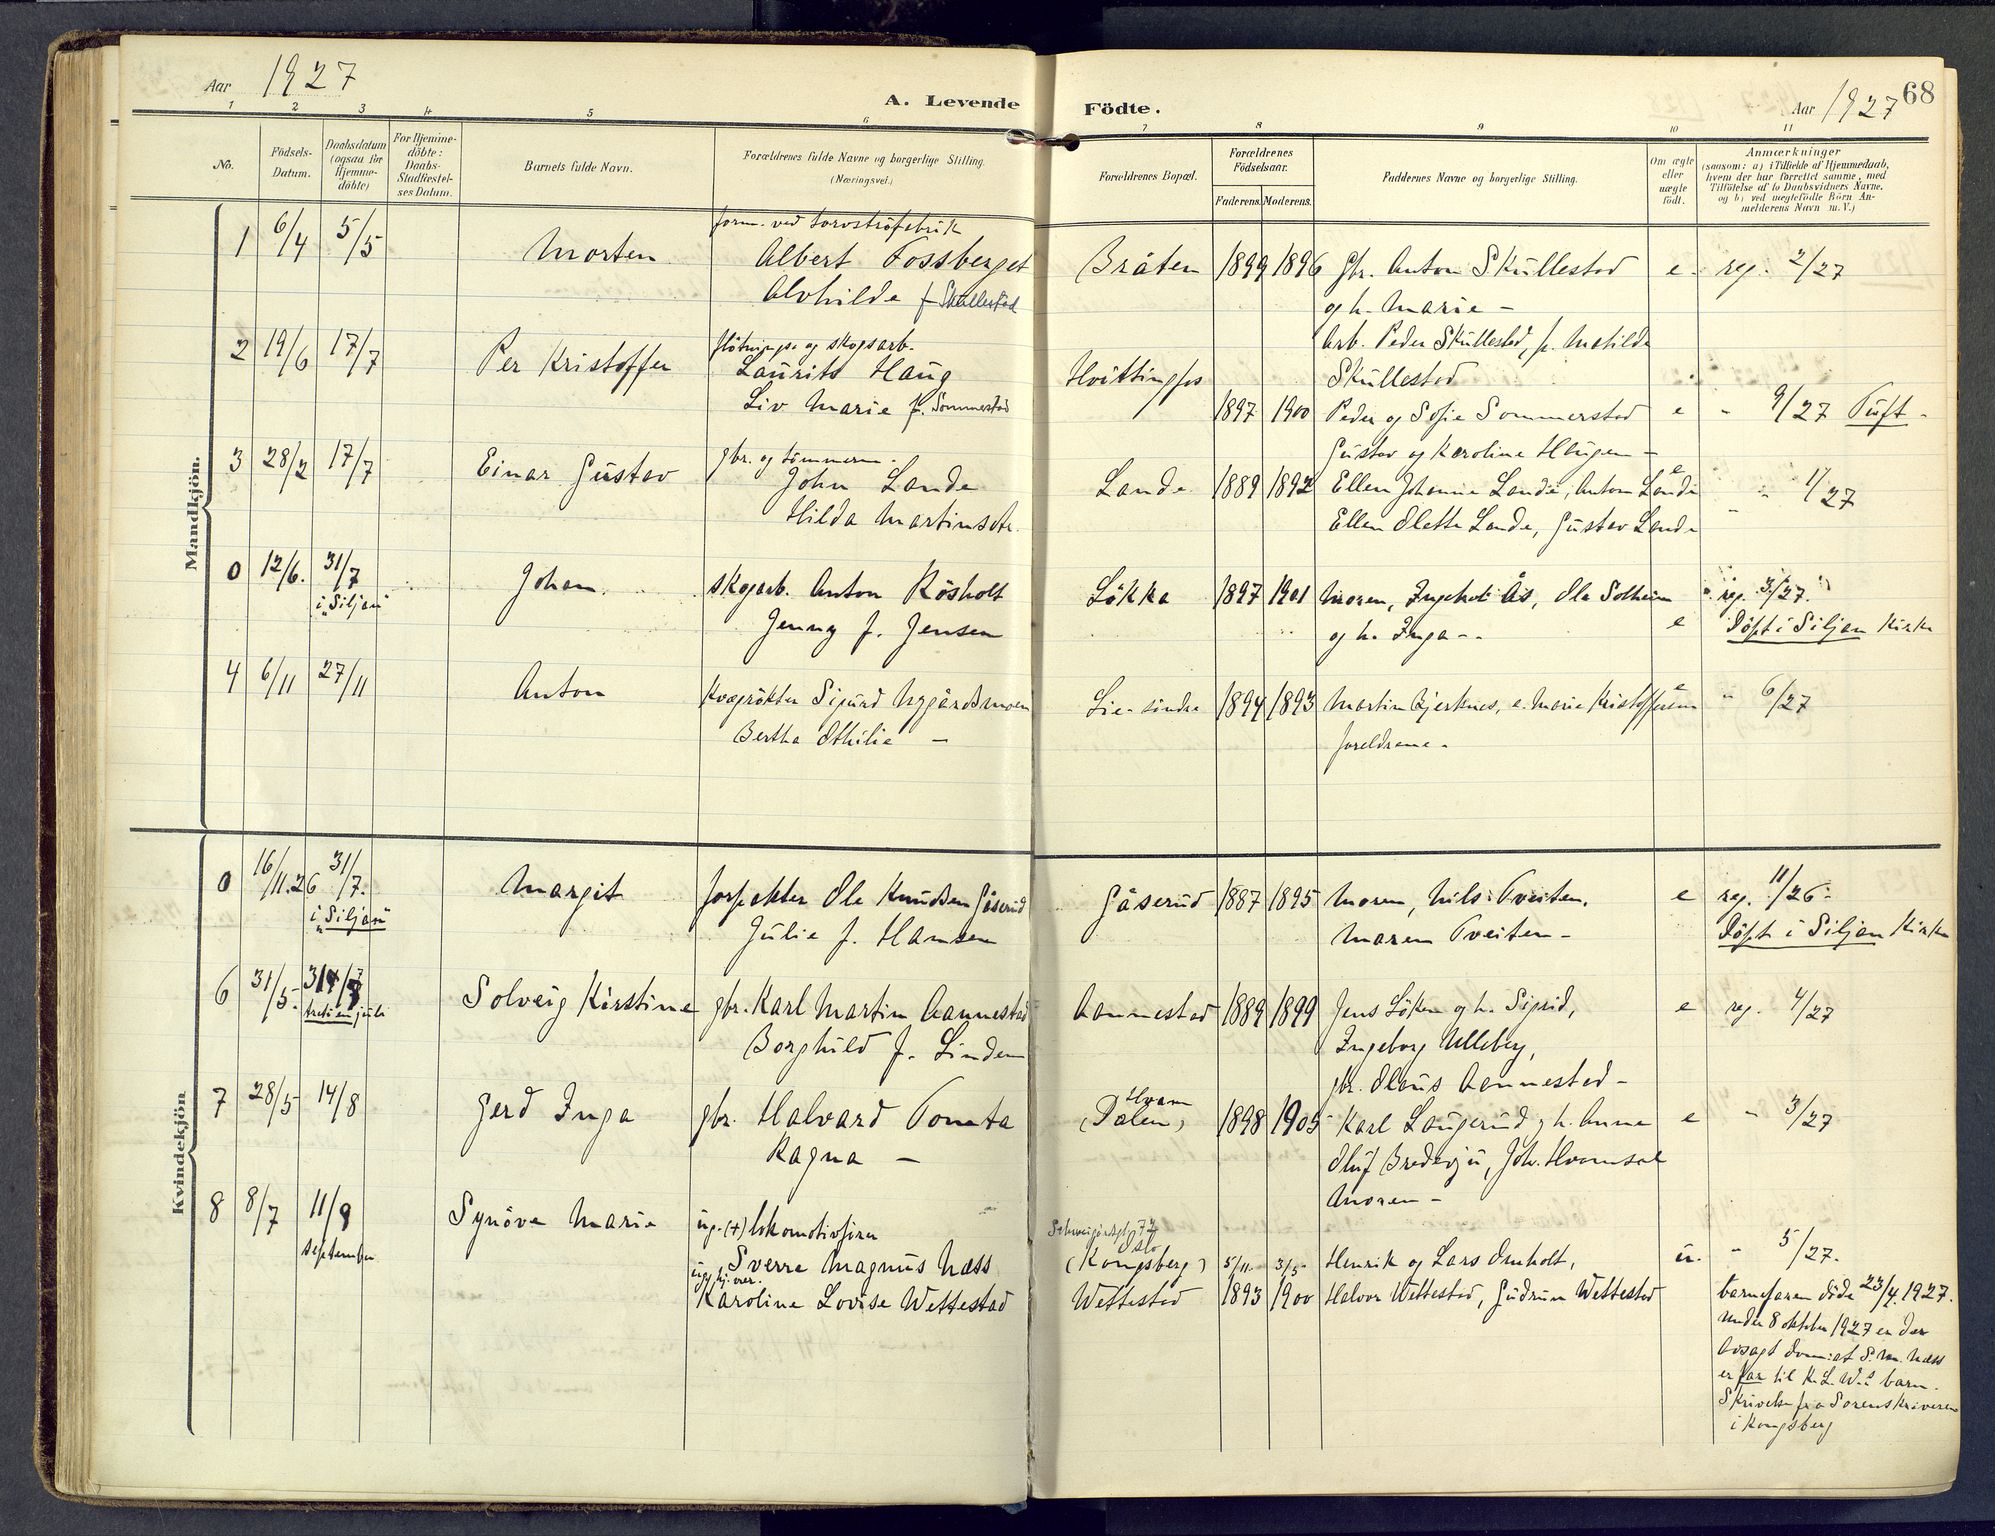 Aar 1927
A. Levende Födte.
Aar 1927
68
1 2 3 4 5 6 7 8 9 10 11
No.
Födsels-
Datum.
Daabsdatum
(ogsaa for
Hjemme-
döbte)
For Hjemme-
döbte:
Daabs-
Stadfæstel-
ses Datum.
Barnets fulde Navn.
Forældrenes fulde Navne og borgerlige Stilling.
(Næringsvei.)
Forældrenes Bopæl.
Forældrenes
Födselsaar.
Faderens. Moderens.
Faddernes Navne og borgerlige Stilling.
Om ægte
eller
uægte
födt.
Anmærkninger
(saasom: a) i Tilfælde af Hjemmedaab,
hvem der har forrettet samme, med
Tilföielse af to Daabsvidners Navne.
og b) ved uegtefödte Börn An-
melderens Navn m. V.)
Mandkjön.
form. ved
1 6/4 5/5 Morten Albert Fossberget Bråten 1899 1896 Gbr. Anton Skullestad e. reg. 2/27
Alvhilde f. Skullestad og h. Marie –
Arb. Peder Skullestad, f. Matilde
Skullestad
fløtnings- og skogsarb.
2 19/6 17/7 Per Kristoffer Laurits Haug Hvittingfos
Liv Marie f. Sommerstad 1897 1900 Peder og Sofie Sommerstad e – 9/27 Tuft –
Gustav og Karoline Haugen –
gbr. og tømmerm.
3 28/2 17/7 Einar Gustav John Lande Lande 1889 1892 Ellen Johanne Lande, Anton Lande e – 1/27
Hilda Martinsdtr. Ellen Olette Lande, Gustav Lande
0 12/6. 31/7 Johan skogarb. Anton Rösholt Lökka 1897 1901 Moren, Ås, Ola Solheim reg. 3/27.
i "Siljan" Jenny f. Jensen og h. Inga – e Döpt i Siljan Kirke
4 6/11 27/11 Anton Kvegrökter Sigurd Nygårdsmoen Lie söndre 1894 1893 Martin Bjerknes, e. Marie Kristoffersen e " 6/27
Bertha Othilie – foreldrene –
Kvindekjön
0 16/11.26 31/7. Margit forpakter Ole Knudsen Gåserud Gåserud 1887 1895 Moren, Nils Tveiten. e reg. 11/26.
i "Siljan" Julie f. Hansen Maren Tveiten – Döpt i Siljan Kirke
6 31/5. 31/7 Solveig Kirstine gbr. Karl Martin Aannestad Aannestad 1889 1899 Jens Löken og h. Sigrid, e reg. 4/27
Borghild f. Linden Ingeborg Ulleberg,
gbr. Olaus Aannestad –
7 28/5 14/8 Gerd Inga gbr. Halvard Tomta Hvam (Dalen) 1898 1905 Karl Laugerud og h. Anna e " 3/27
Ragna – Oluf Bredevju, Joh. Hvamsal
Moren –
8 8/7 11/9 Synöve Marie ug. (+) lokomotivförer
september
Sverre Magnus Næss (Kongsberg) Oslo 5/11 3/5 Henrik og Lars Omholt, u. – 5/27.
Karoline Lovise Wettestad Wettestad 1893 1900 Halvor Wettestad, Gudrun Wettestad
barnefaren döde 23/4. 1927.
Under 8 oktober 1927 er der
avsagt dom: at S. M. Næss
er far til K. L. W.s barn.
Skrivelse fra Sorenskriveren
i Kongsberg